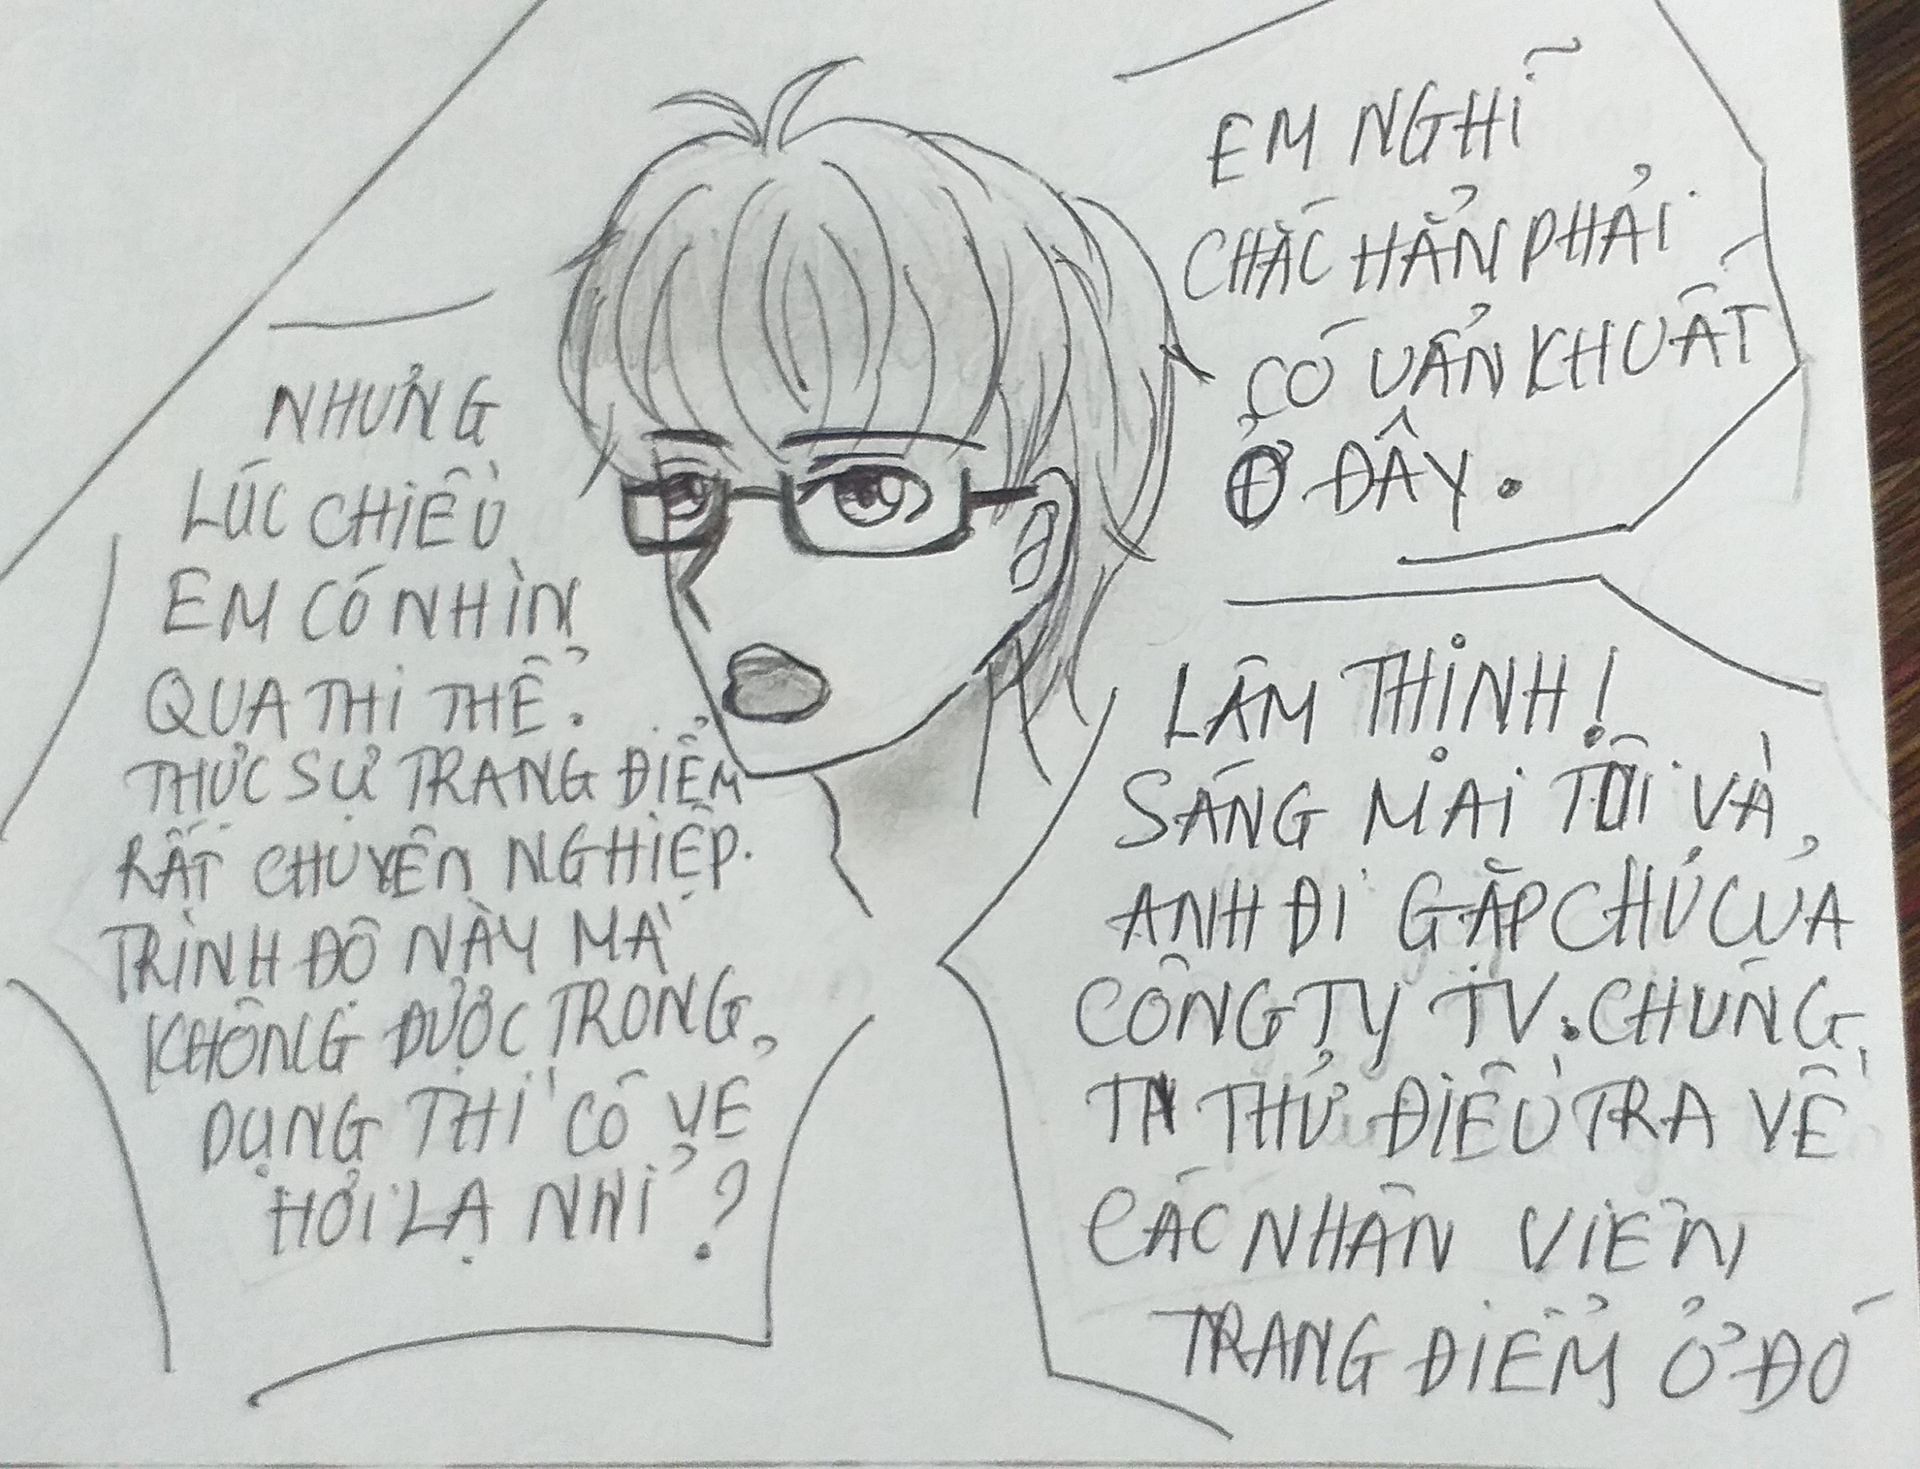 NHƯNG
LÚC CHIỀU
EM CÓ NHÌN
QUA THI THỂ.
THỰC SỰ TRANG ĐIỂM
RẤT CHUYÊN NGHIỆP.
TRÌNH ĐỘ NÀY MÀ
KHÔNG ĐƯỢC TRỌNG
DỤNG THÌ CÓ VẺ
HƠI LẠ NHỈ?
EM NGHĨ
CHẮC HẲN PHẢI
CÓ UẨN KHUẤT
Ở ĐÂY.
LÂM THỊNH!
SÁNG MAI TÔI VÀ
ANH ĐI GẶP CHỦ CỦA
CÔNG TY TV. CHÚNG
TA THỬ ĐIỀU TRA VỀ
CÁC NHÂN VIÊN
TRANG ĐIỂM Ở ĐÓ